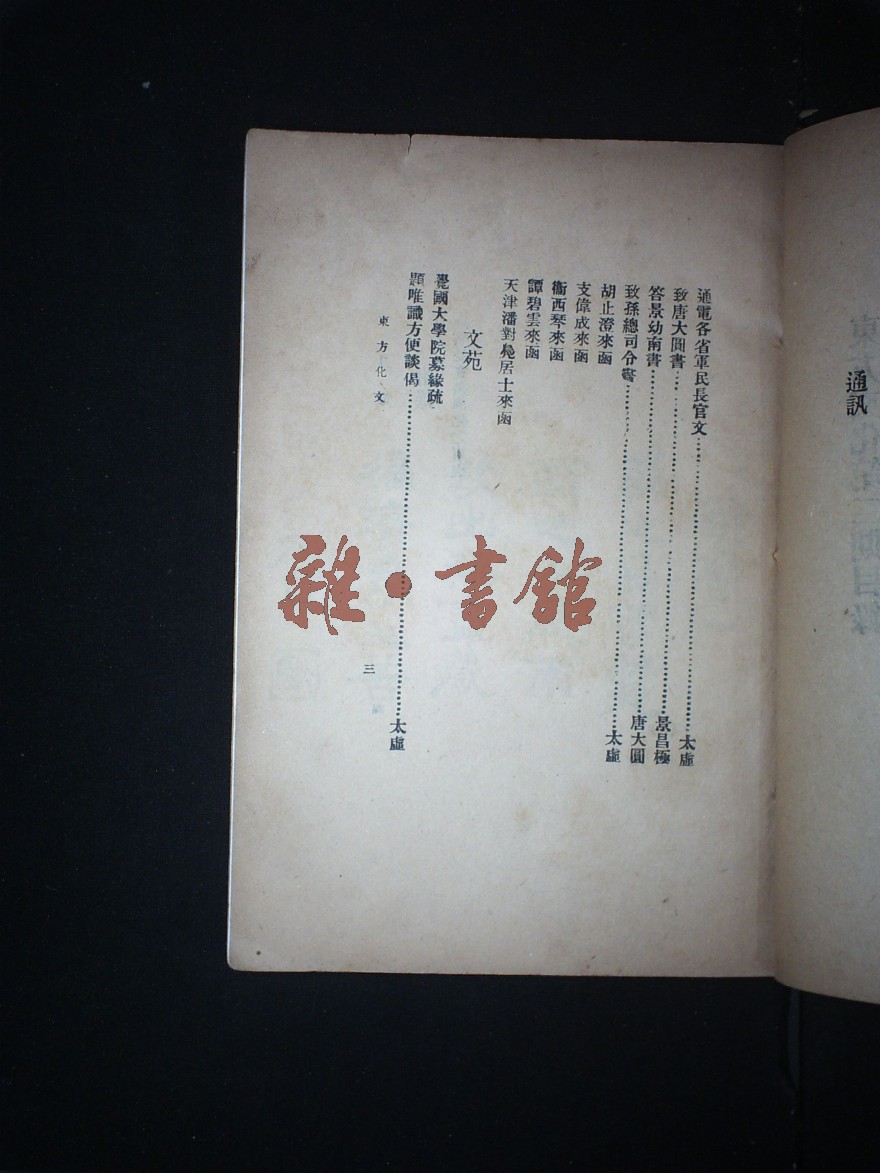 通訊
通電各省軍民長官文……太虛
致唐大圓書……景昌極
答景幼南書……唐大圓
致孫總司令書……太虛
胡止澄來函
支偉成來函
衞西琴來函
譚碧雲來函
天津潘對鳧居士來函
文苑
覺國大學院募緣疏
題唯識方便談偈……太虛
東方化文
三
雜·書館